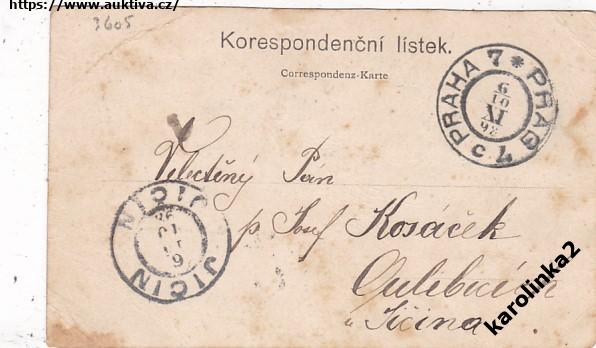 https://www.auktiva.cz/
3605
Korespondenční lístek.
Correspondenz-Karte
PRAHA 7 * PRAG 7 c
6
10
XI
98
Velectěný Pán
p Josef Kosáček
JIČIN JIČIN
u Jičina
karolinka2